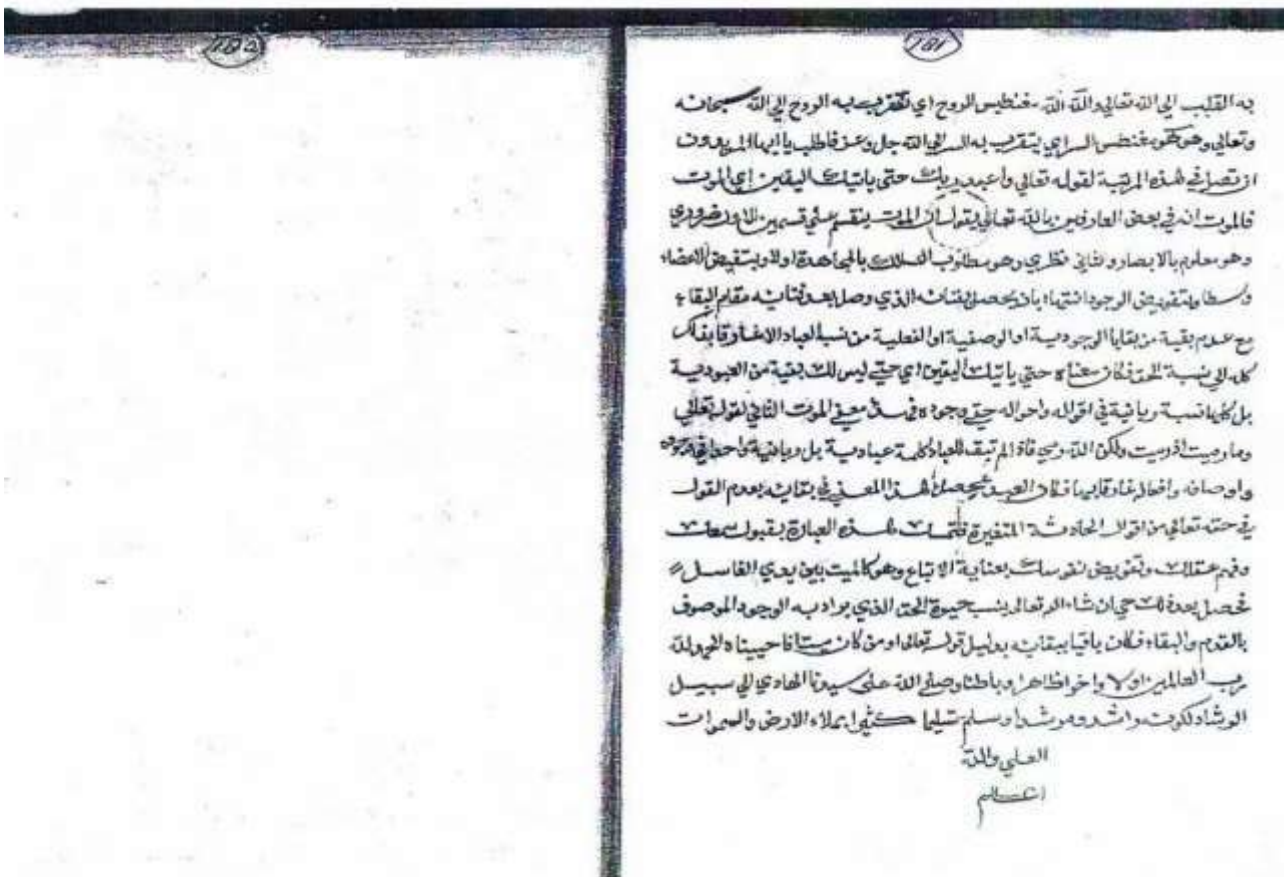 182
181
به القلب الي الله تعالي والله الله مغنطيس الروح اي تتقرب به الروح الي الله سبحانه
وتعالي وهو هو مغنطس السر اي يتقرب به السر الي الله جل وعز فاطلب يا ايها المريدون
ان تصل في هذه المرتبة لقوله تعالي واعبد ربك حتى ياتيك اليقين اي الموت
فالموت بعض العارفين بالله تعالي يقول ان الموت ينقسم علي قسمين الاول ضروري
وهو معلوم بالابصار والثاني نظري وهو مطلوب السلاك بالمجاهدة اولا وبتفيض الاعضاء
الوجود انتهاء بان يحصل الذي وصل بعد فنائه مقام البقاء
مع عدم بقية من بقايا الوجودية او الوصفية او الفعلية من نسبة العباد
كله الي نسبة الحق فكان معناه حتي ياتيك اليقين اي حتي ليس لك بقية من العبودية
بل كلها نسبة ربانية في اقواله واحواله حتي وجوده معني الموت الثاني لقوله تعالي
وما رميت اذ رميت ولكن الله رمي فاذا لم تبق للعباد كلمة عبادية بل ربانية
واوصافه وافعاله فكان العبد يحصل هذا المعني في بقائه بعدم القول
في حقه تعالي من اقوال الحادثة المتغيرة هذه العبارة بقبول سمعك
وفهم عقلك وتفويض نفوسك بعناية الاتباع وهو كالميت بين يدي الغاسل
تحصل بعد ذلك حي ان شاء الله تعالي بنسب حيوة الحق الذي يراد به الوجود الموصوف
بالقدم والبقاء فكان باقيا ببقائه بدليل قوله تعالي او من كان ميتا فاحييناه الحمد لله
رب العالمين اولا واخرا ظاهرا وباطنا وصلي الله على سيدنا الهادي الي سبيل
الرشاد ومرشدا وسلم تسليما كثيرا بملاء الارض والسموات
العلي والله
اعلم